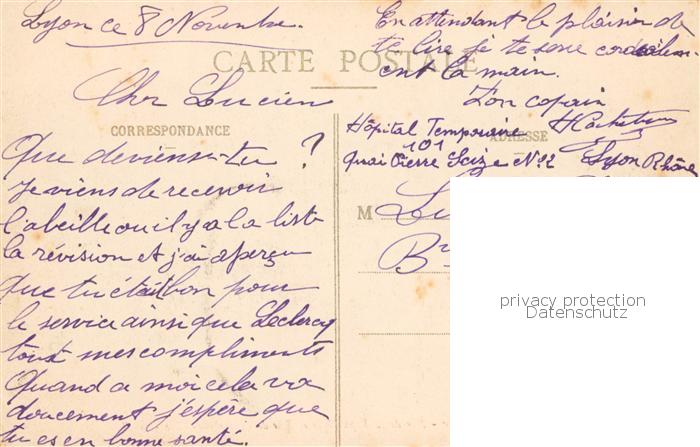 Lyon ce 8 Novembre
CARTE POSTALE
Cher Lucien
CORRESPONDANCE
Que deviens-tu ?
Je viens de recevoir
l'abeille ou il y a la liste
la révision et j'ai aperçu
que tu étais bon pour
le service ainsi que Leclercq
tout mes compliments
Quand a moi cela va
doucement j'espère que
tu es en bonne santé.
En attendant le plaisir de
te lire je te serre cordialem-
ent la main.
Ton copain
Hôpital Temporaire
ADRESSE
101
Quai Pierre Scize N°2 Lyon Rhône
M
privacy protection
Datenschutz